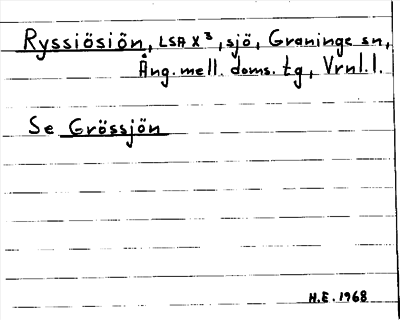 Ryssiösiön, LSA X³, sjö, Graninge sn,
Ång. mell. doms. tg, Vrnl. l.
Se Grössjön
H.E. 1968